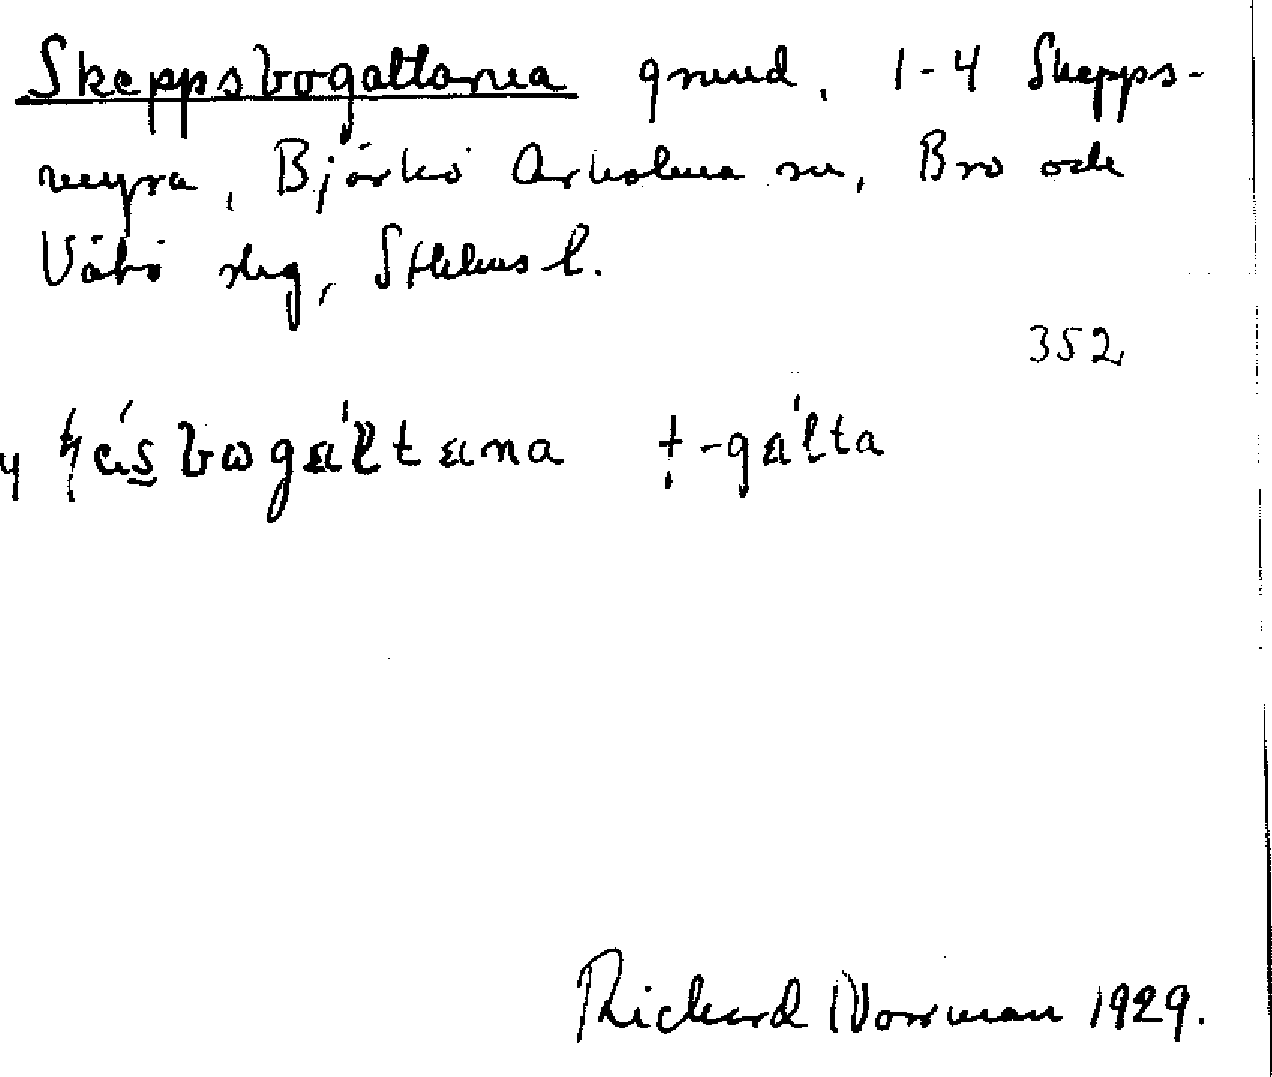 Skeppsbogaltarna grund, 1-4 Skepps-
myra, Björkö Arholma sn, Bro och
Vätö slg, Sthlms l.
352
-galta
Richard Norrman 1929.